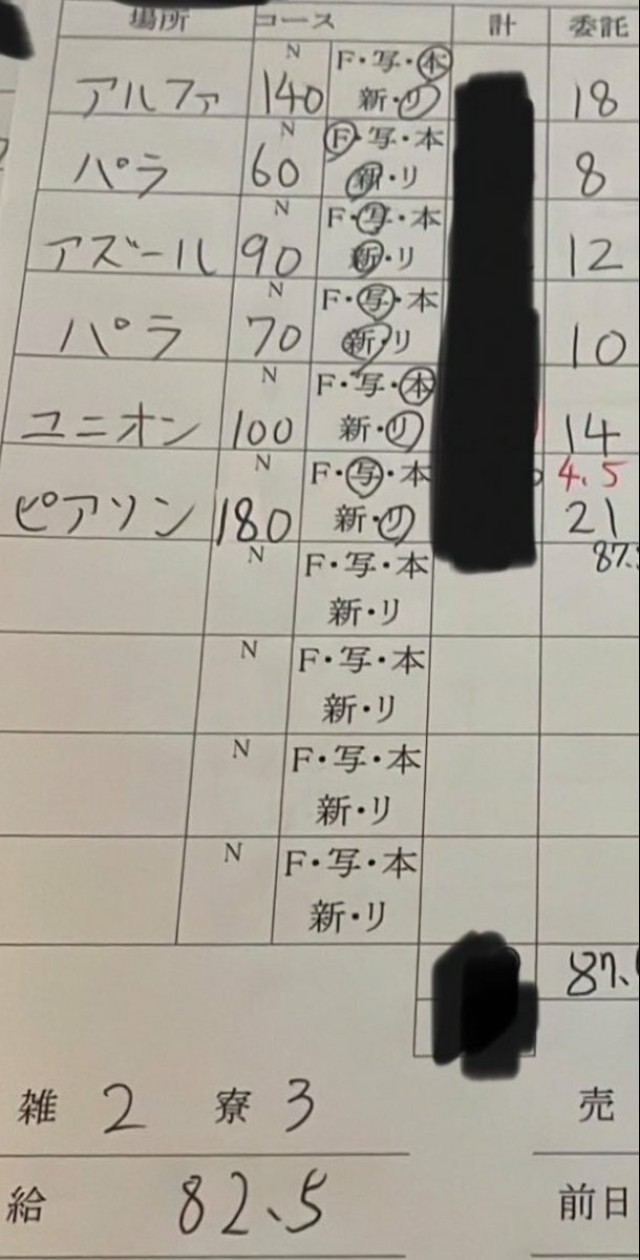 場所 コース 計 委託
アルファ N 140 F・写・本 18
新・リ
パラ N 60 F・写・本 8
新・リ
アズール N 90 F・写・本 12
新・リ
パラ N 70 F・写・本 10
新・リ
ユニオン N 100 F・写・本 14
新・リ
4.5
ピアソン N 180 F・写・本 21
新・リ
87.
N F・写・本
新・リ
N F・写・本
新・リ
N F・写・本
新・リ
N F・写・本
新・リ
87.
雑 2 寮 3 売
給 82.5 前日